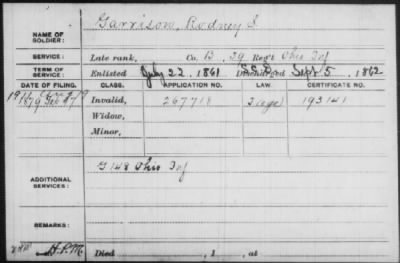 NAME OF SOLDIER: Garrison, Rodney S.
SERVICE: Late rank, Co. B, 29 Reg't Ohio Inf
TERM OF SERVICE: Enlisted July 22, 1861 Discharged Sept 5, 1862
DATE OF FILING. CLASS. APPLICATION NO. LAW. CERTIFICATE NO.
1879 Invalid, 267718 193141
Widow,
Minor,
ADDITIONAL SERVICES: G 148 Ohio Inf
REMARKS:
Died , 1 , at